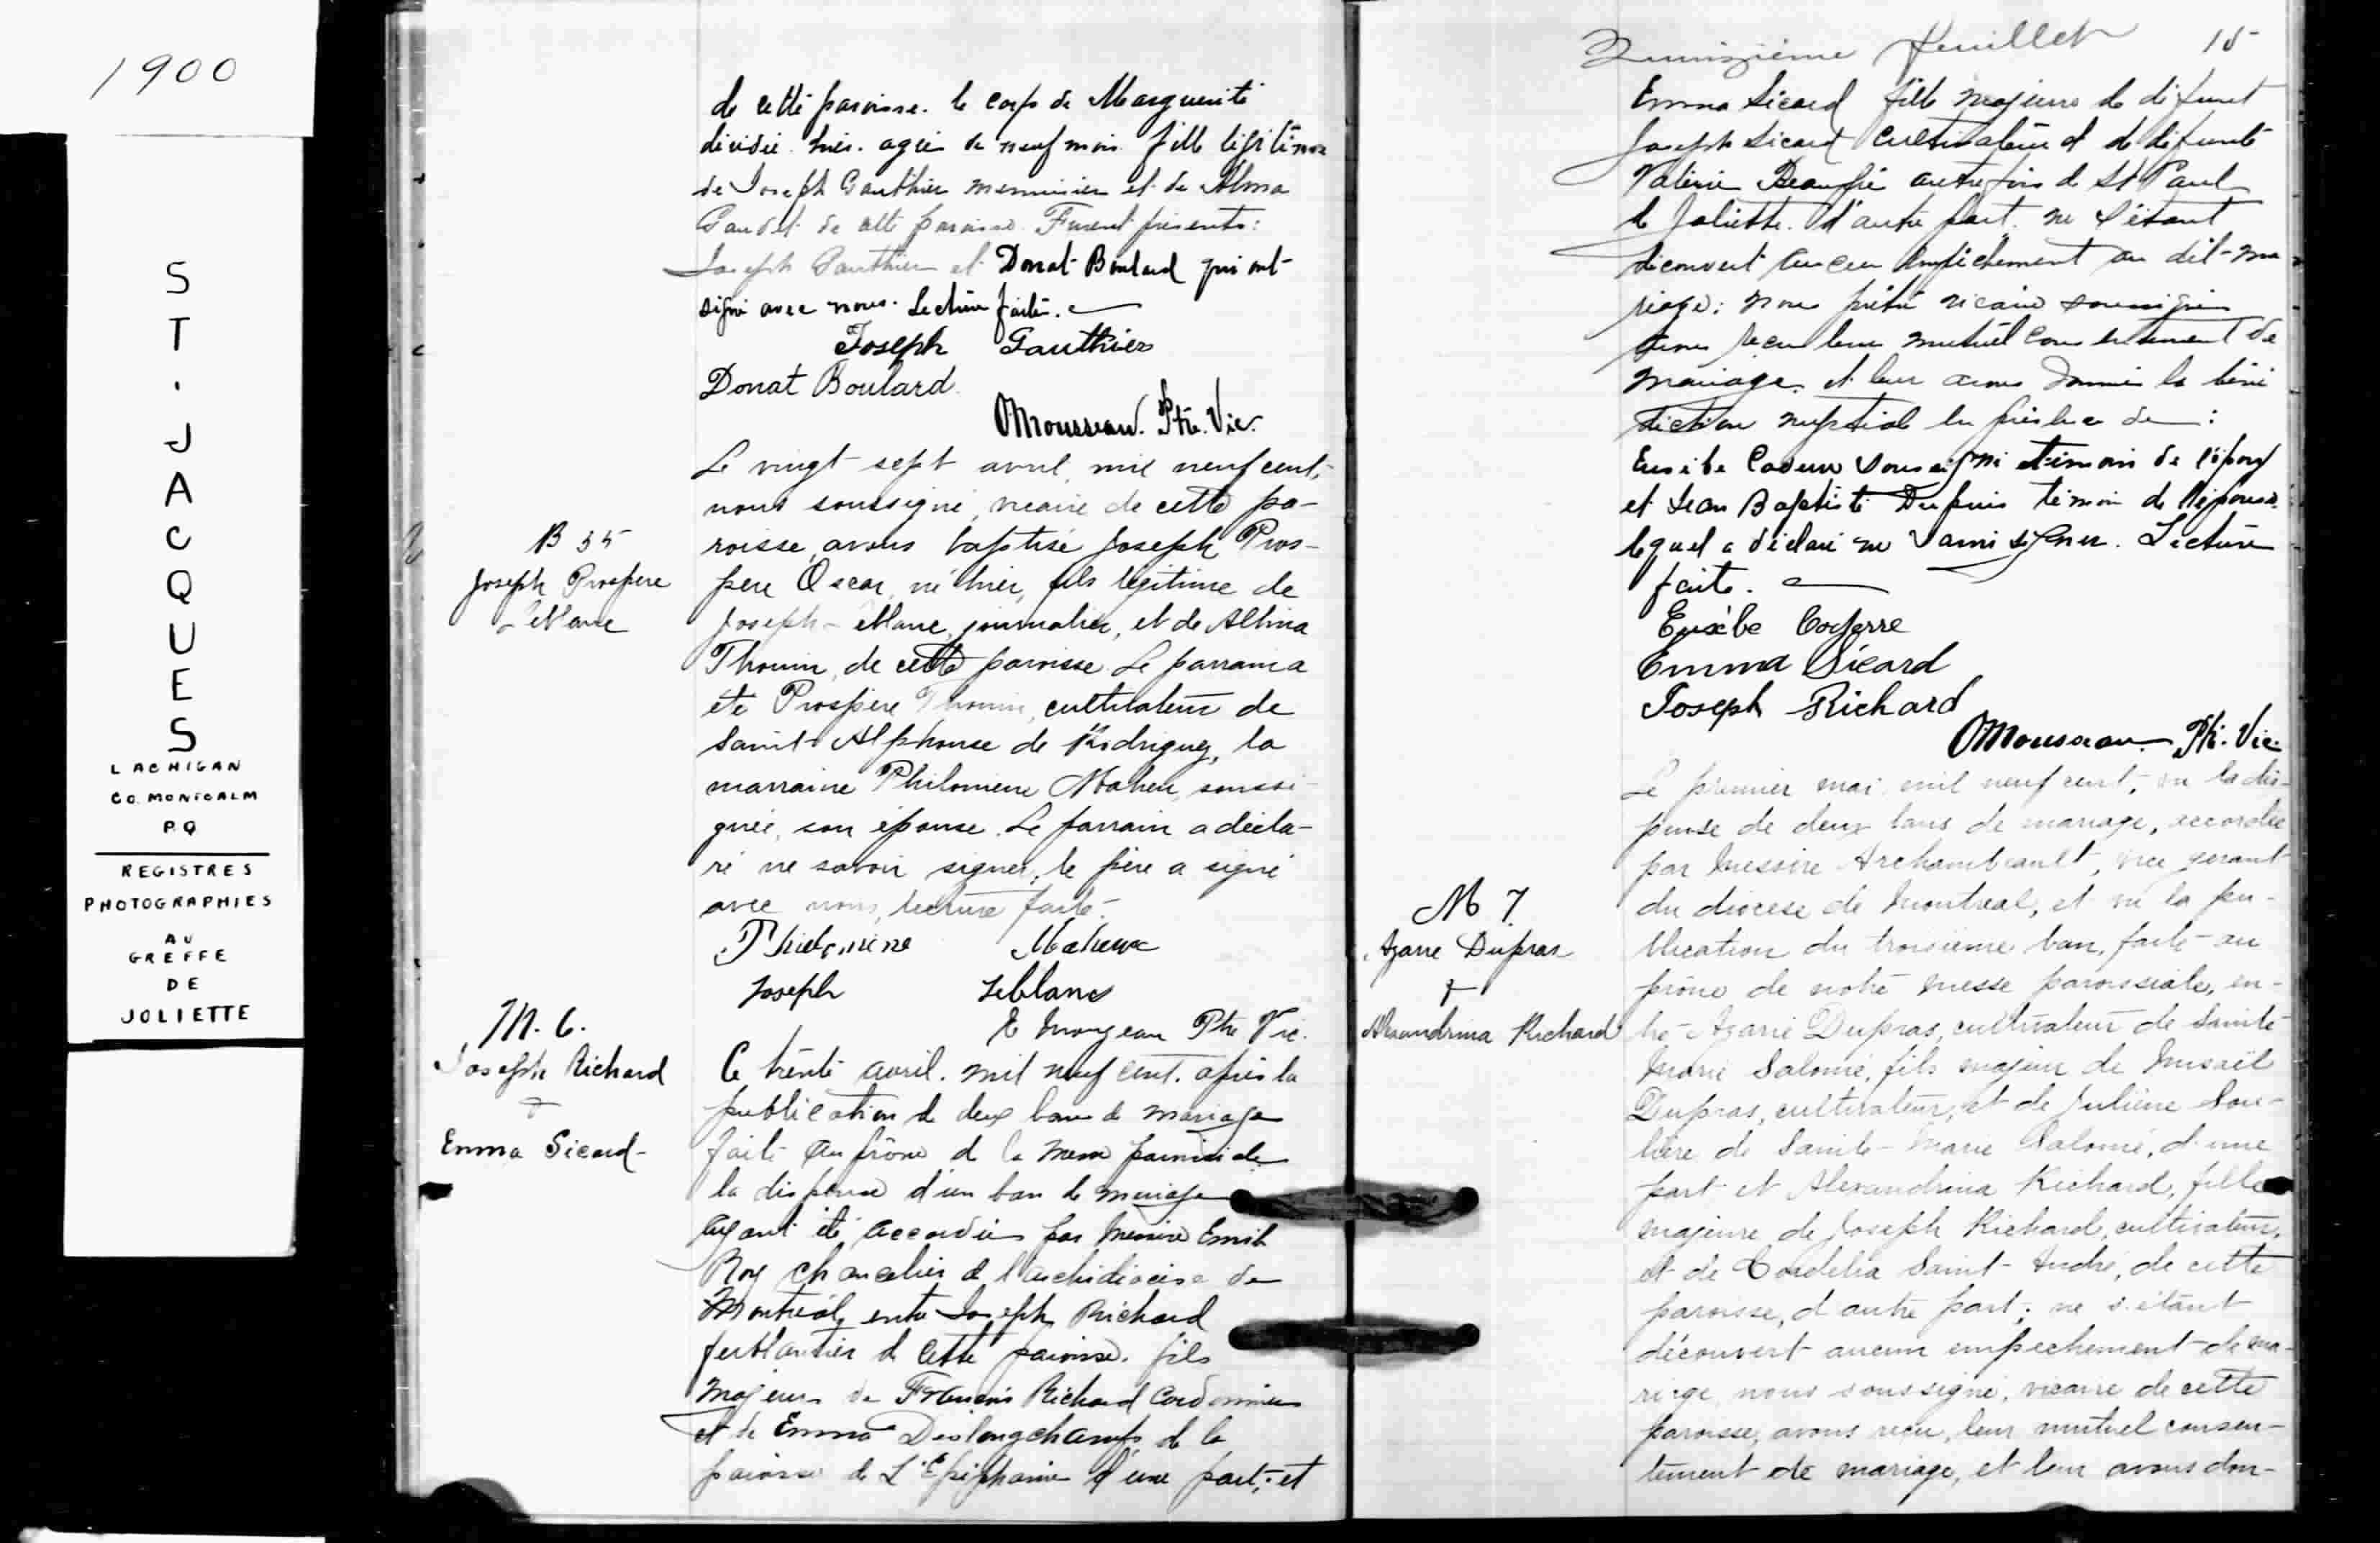 1900
ST. JACQUES
LACHIGAN
CO. MONTCALM
P.Q
REGISTRES
PHOTOGRAPHIES
AU
GREFFE
DE
JOLIETTE
de cette paroisse. le corps de Marguerite
décédée hier. agée de neuf mois fille légitime
de Joseph Gauthier menuisier et de Alma
Gaudet de cette paroisse. Furent présents:
Joseph Gauthier et Donat Boulard qui ont
signé avec nous. Lecture faite.
Joseph Gauthier
Donat Boulard
OMousseau. Ptr. Vic.
B 35
Joseph Prospère
Leblanc
Le vingt-sept avril, mil neuf cent,
nous soussigné, vicaire de cette pa-
roisse, avons baptisé Joseph Pros-
père Oscar, né hier, fils légitime de
Joseph Leblanc, journalier, et de Albina
Thouin, de cette paroisse. Le parrain a
été Prospère Thouin, cultivateur de
Saint Alphonse de Rodriguez, la
marraine Philomène Maheu, soussi-
gnée, son épouse. Le parrain a décla-
ré ne savoir signer, le père a signé
avec nous, lecture faite.
Philomène Maheux
Joseph Leblanc
E Morjeau Ptre Vic.
M. 6.
Joseph Richard
+
Emma Sicard
Ce trente avril. mil neuf cent. après la
publication de deux bans de mariage
faite au prône de la messe paroissiale
la dispense d'un ban de mariage
ayant été accordée par Messire Emile
Roy chancelier de l'archidiocèse de
Montréal, entre Joseph Richard
ferblantier de cette paroisse. fils
majeur de François Richard Cordonnier
et de Emma Deslongchamps de la
paroisse de L'Epiphanie d'une part, et
Quinzième feuillet 15
Emma Sicard fille majeure de défunt
Joseph Sicard cultivateur et de défunte
Valérie Beaupré autrefois de St Paul
de Joliette. d'autre part. ne s'étant
découvert aucun empêchement au dit-ma
riage: nous prêtre vicaire soussigné
avons reçu leur mutuel consentement de
mariage. et leur avons donné la béné
diction nuptiale en présence de :
Eusèbe soussigné témoin de l'époux
et Jean Baptiste Dupuis témoin de l'épouse.
lequel a déclaré ne savoir signer. Lecture
faite.
Eusèbe
Emma Sicard
Joseph Richard
OMousseau. Ptr. Vic.
M 7
Azarie Dupras
+
Alexandrina Richard
Le premier mai mil neuf cent, vu la dis-
pense de deux bans de mariage, accordée
par Messire Archambeault, vice gérant
du diocèse de Montréal, et vu la pu-
blication du troisième ban, faite au
prône de notre messe paroissiale, en-
tre Azarie Dupras, cultivateur de Sainte
Marie Salomé, fils majeur de Misaël
Dupras, cultivateur, et de Julienne Sou-
lière de Sainte-Marie Salomé, d'une
part et Alexandrina Richard, fille
majeure de Joseph Richard, cultivateur,
et de Cordelia Saint-André, de cette
paroisse, d'autre part; ne s'étant
découvert aucun empêchement de ma-
riage, nous soussigné, vicaire de cette
paroisse, avons reçu, leur mutuel consen-
tement de mariage, et leur avons don-